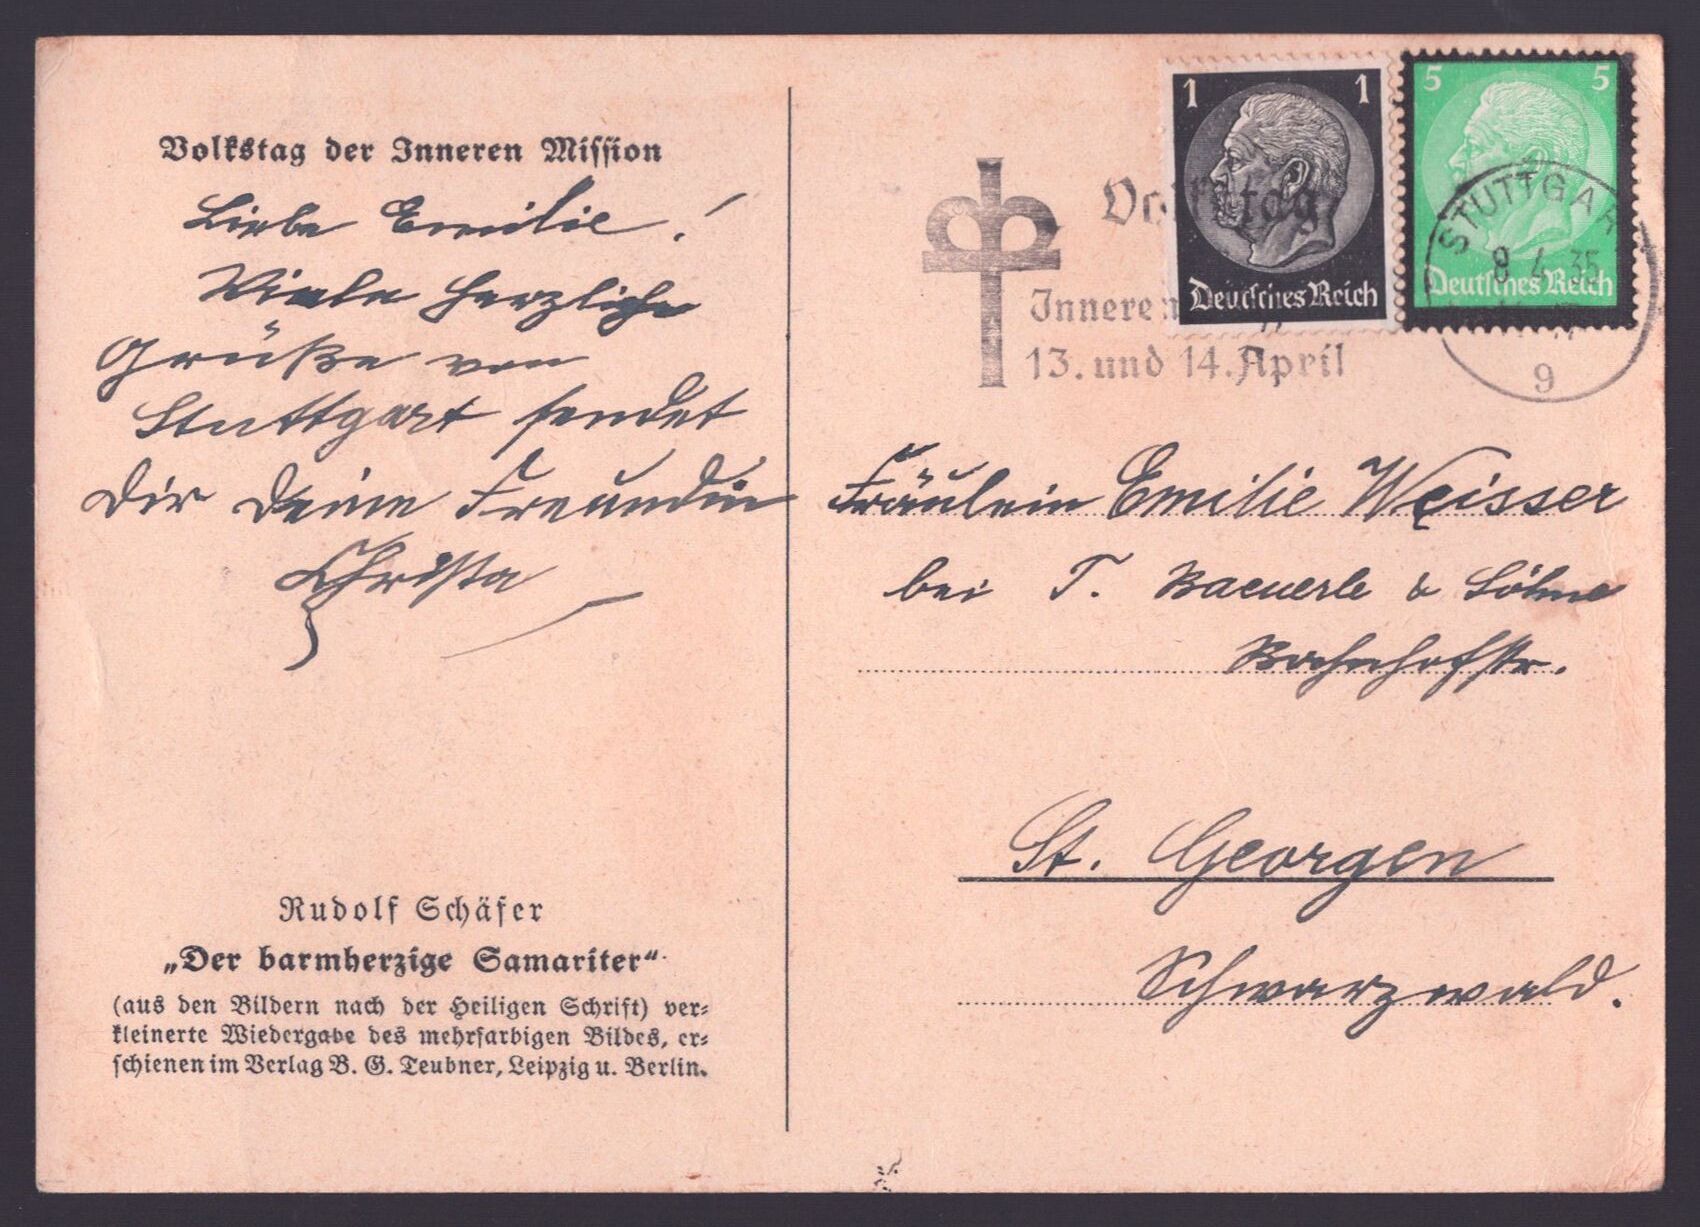 Volkstag der Inneren Mission
Liebe Emilie!
Viele herzliche
Grüße von
Stuttgart sendet
Dir Deine Freundin
Christa
Rudolf Schäfer
„Der barmherzige Samariter“
(aus den Bildern nach der Heiligen Schrift) ver-
kleinerte Wiedergabe des mehrfarbigen Bildes, er-
schienen im Verlag B. G. Teubner, Leipzig u. Berlin.
1 1
Deutsches Reich
5 5
Deutsches Reich
STUTTGAR
8.4.35
9
Volkstag
Inneren
13. und 14. April
Fräulein Emilie Weisser
bei T. Baeuerle & Söhne
Bahnhofstr.
St. Georgen
Schwarzwald.